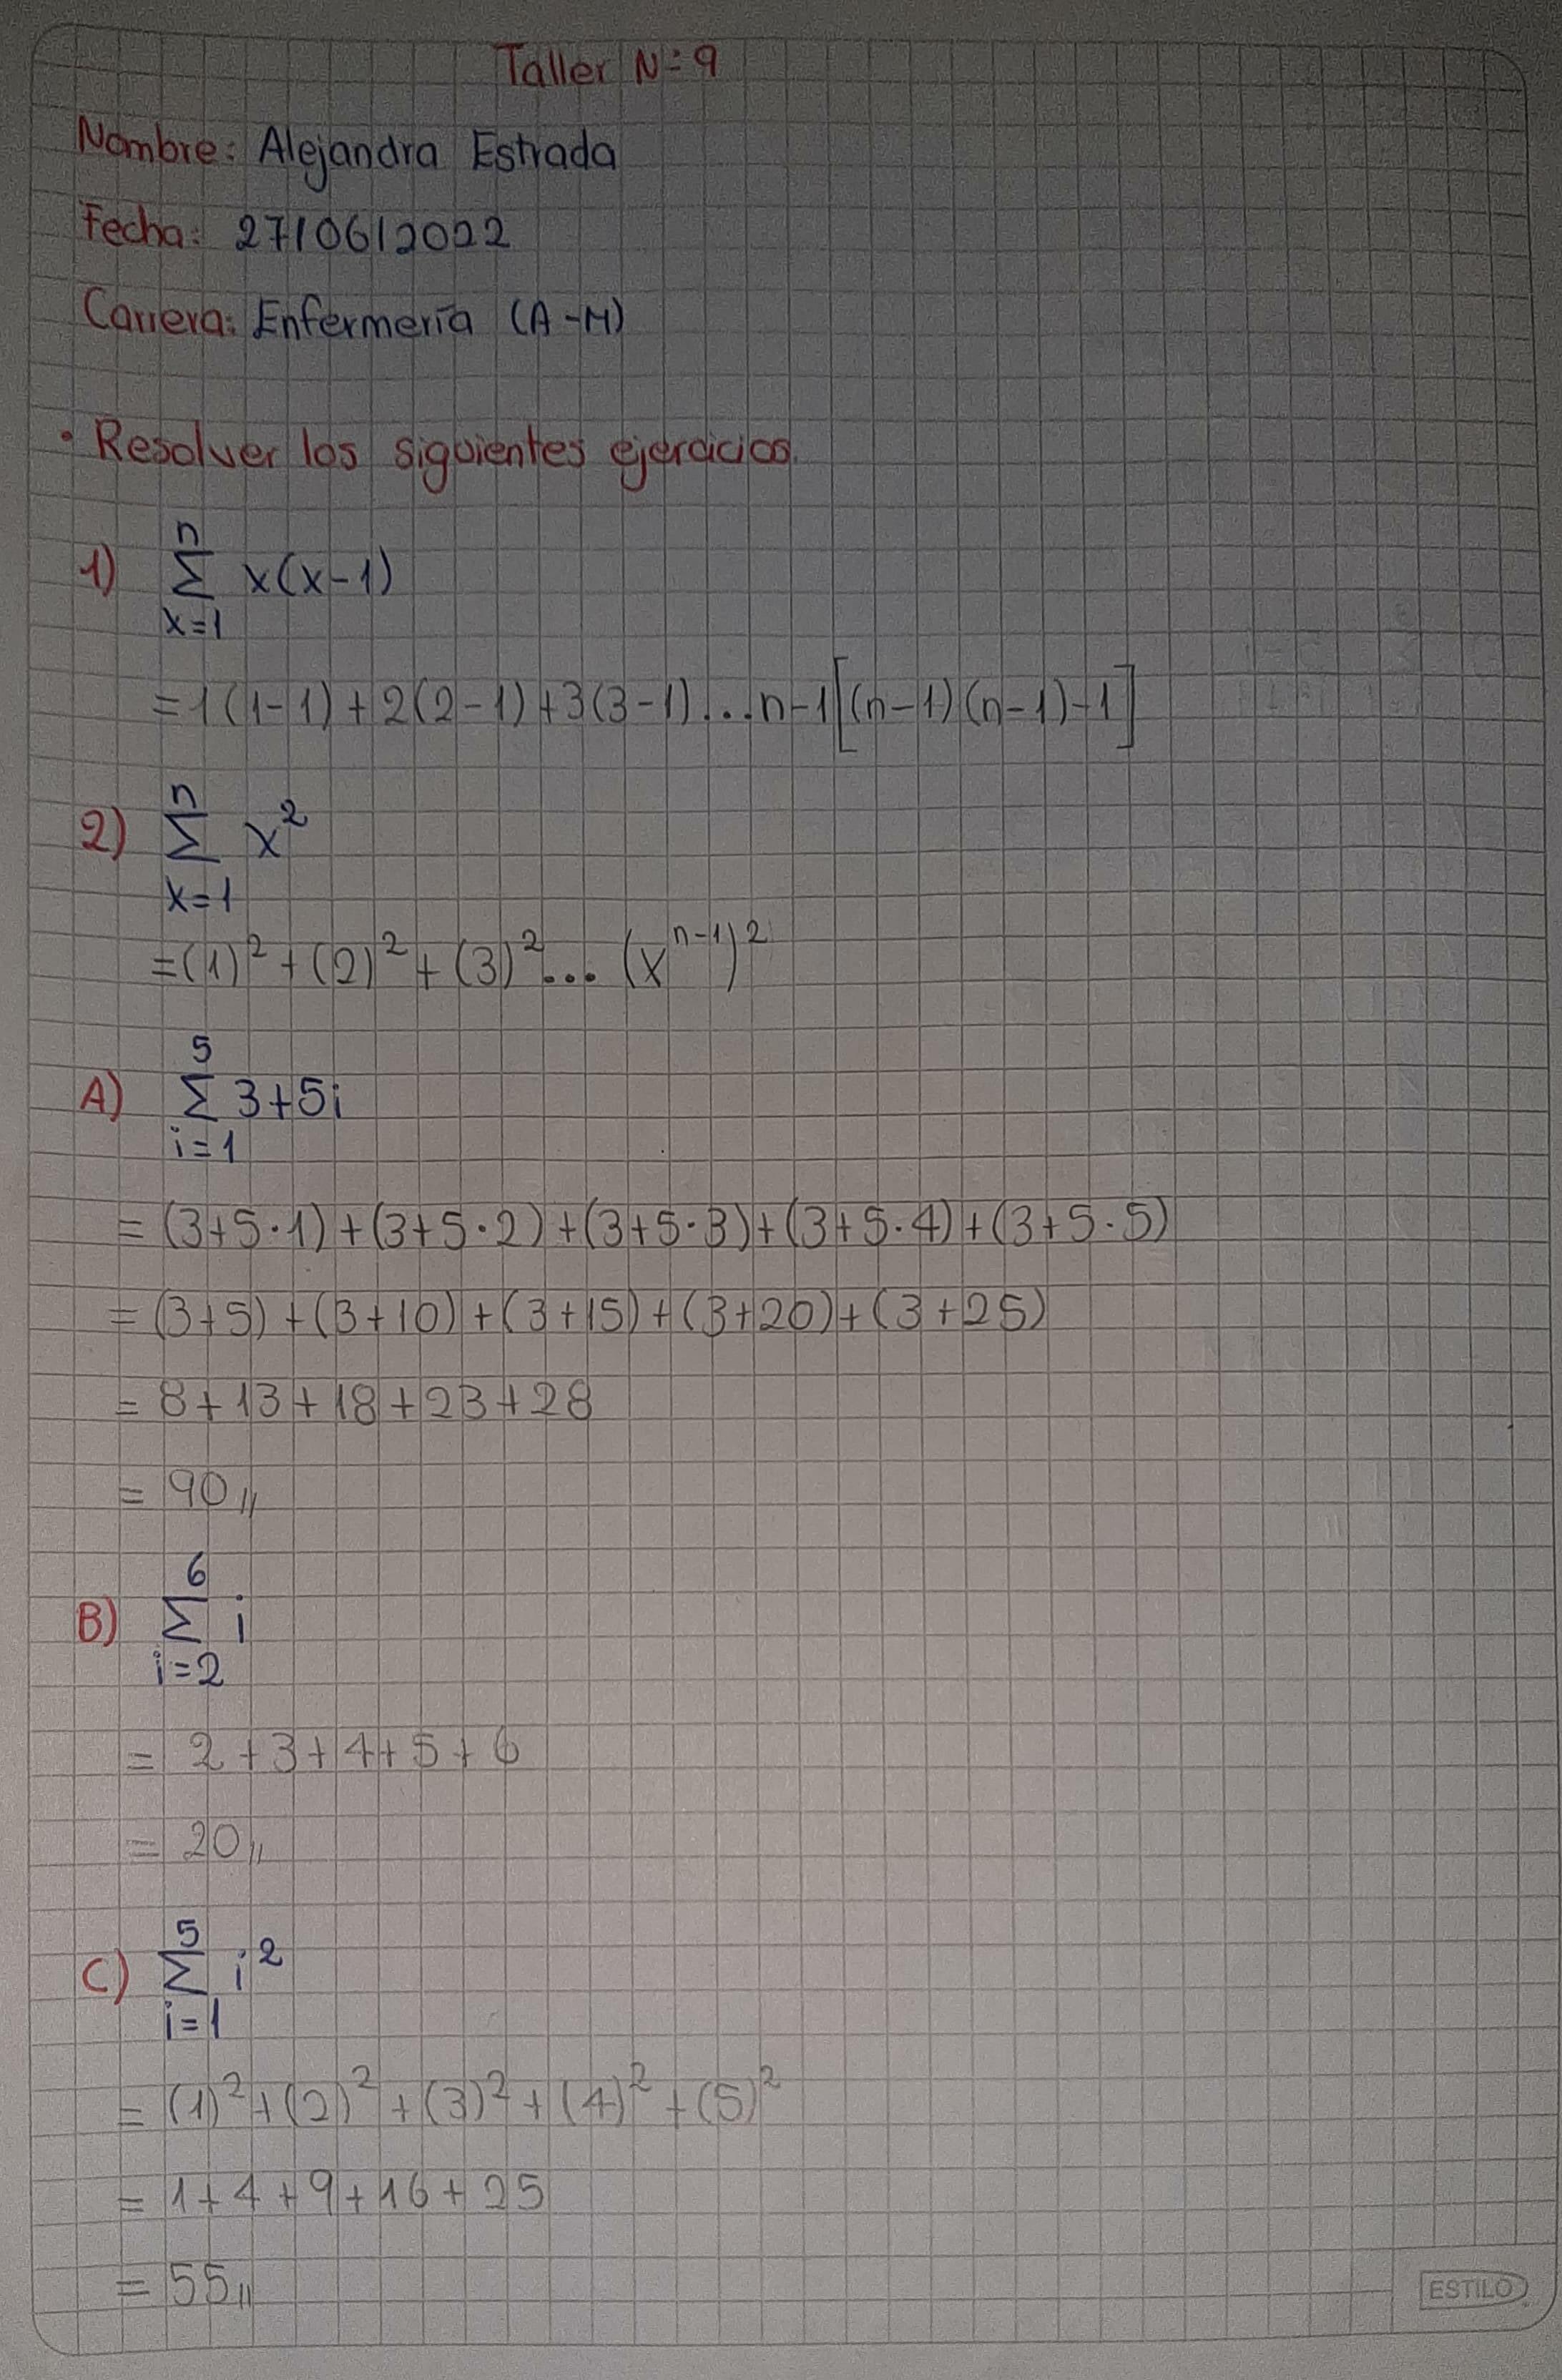 Taller N=9
Nombre: Alejandra Estrada
Fecha: 27/06/2022
Carrera: Enfermería (A-M)
• Resolver los siguientes ejercicios.
n
1) Σ x(x-1)
x=1
=1(1-1)+2(2-1)+3(3-1)...n-1[(n-1)(n-1)-1]
n
2) Σ x²
x=1
=(1)²+(2)²+(3)²...(xⁿ⁻¹)²
5
A) Σ 3+5i
i=1
= (3+5·1)+(3+5·2)+(3+5·3)+(3+5·4)+(3+5·5)
= (3+5)+(3+10)+(3+15)+(3+20)+(3+25)
= 8+13+18+23+28
= 90,,
6
B) Σ i
i=2
= 2+3+4+5+6
= 20,,
5
C) Σ i²
i=1
= (1)²+(2)²+(3)²+(4)²+(5)²
= 1+4+9+16+25
= 55,,
ESTILO